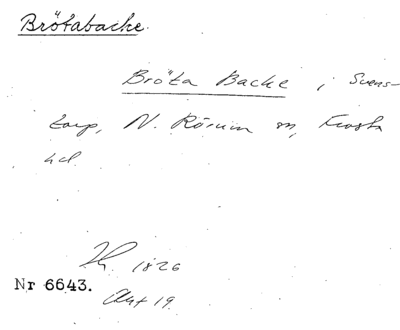 Brötabacke.
Bröta Backe, Svens-
torp, N. Rörum sn, Frosta
hd
1826
Nr 6643.
Akt 19.